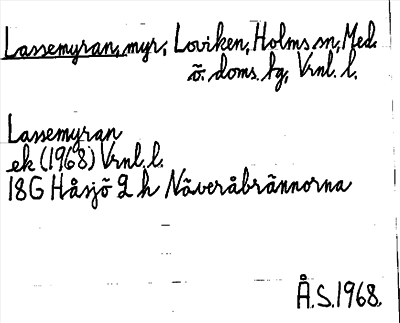 Lassemyran, myr, Loviken, Holms sn, Med.
ö. doms. tg, Vrnl. l.
Lassemyran
ek (1968) Vrnl. l.
18G Håsjö 9 h Näveråbrännorna
Å.S. 1968.